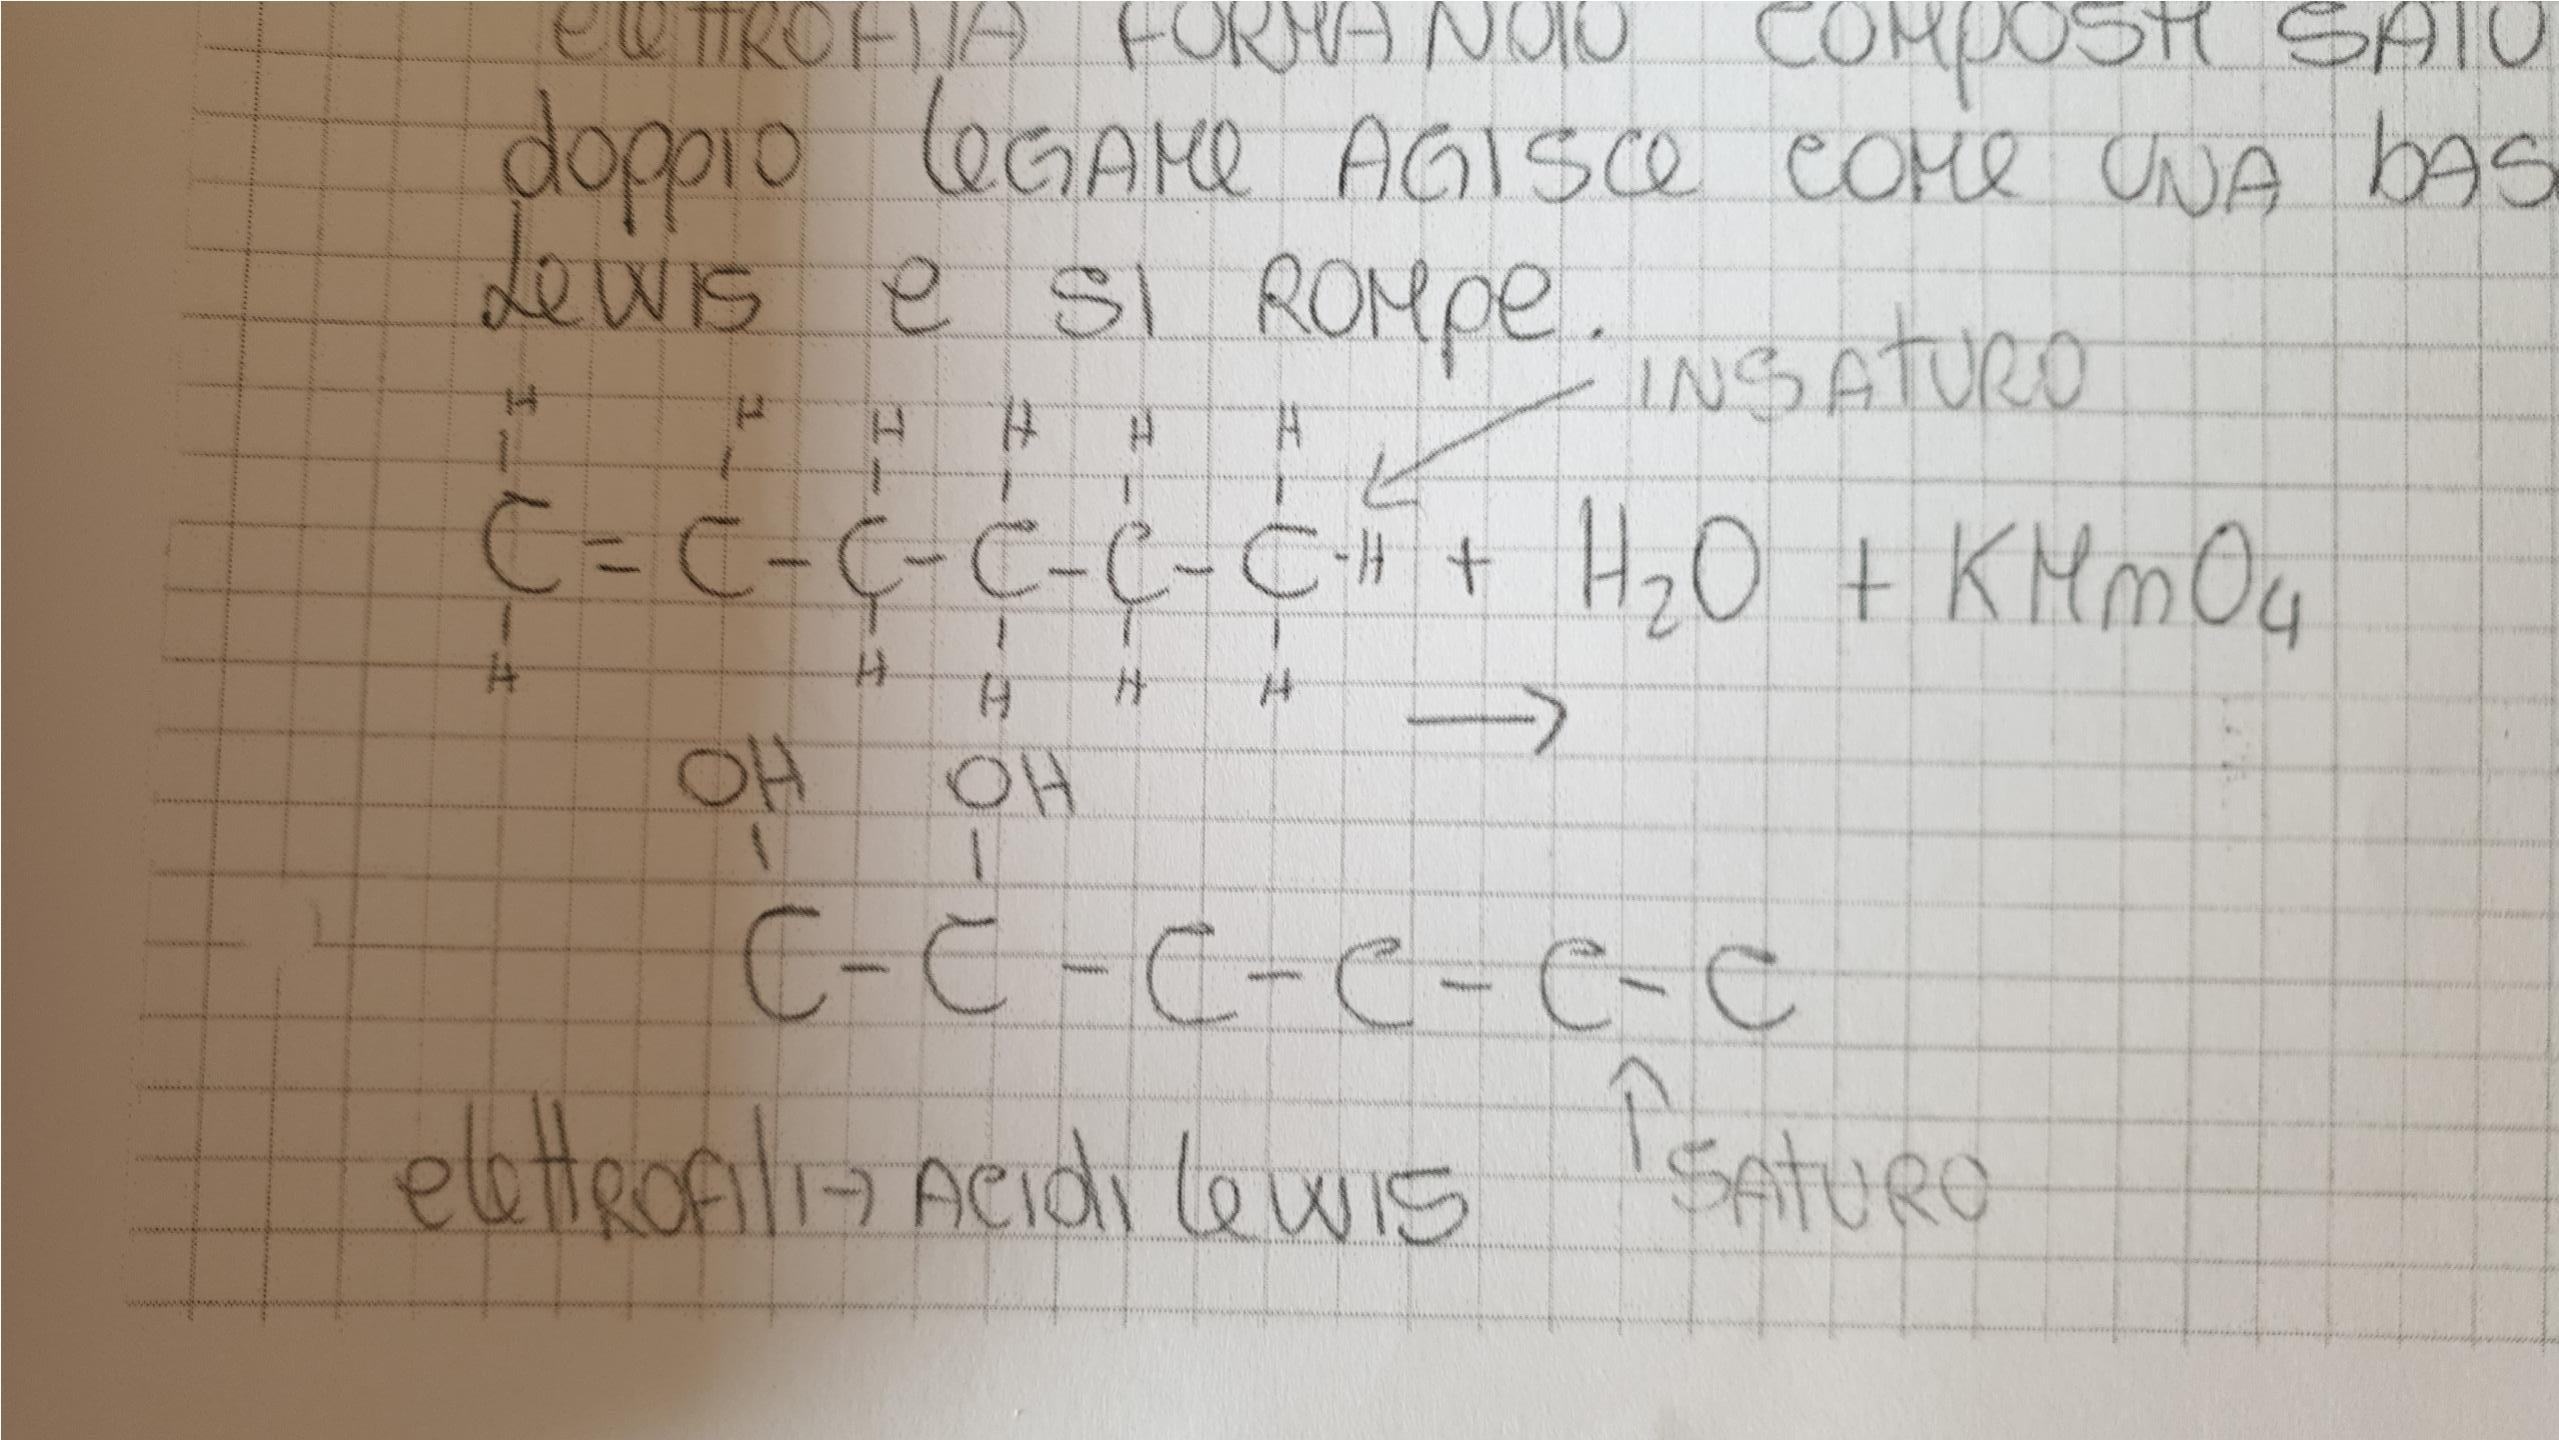 elettROFILA FORMANDO COMPOSTI SATU
doppio leGAMe AGISce COMe UNA bAS
Lewis e SI ROMpe.
INSATURO
H H H H H H
C = C - C - C - C - C - H + H₂O + KMmO₄
H H H H H
→
OH OH
C - C - C - C - C - C
elettROFILI → Acidi Lewis
SATURO